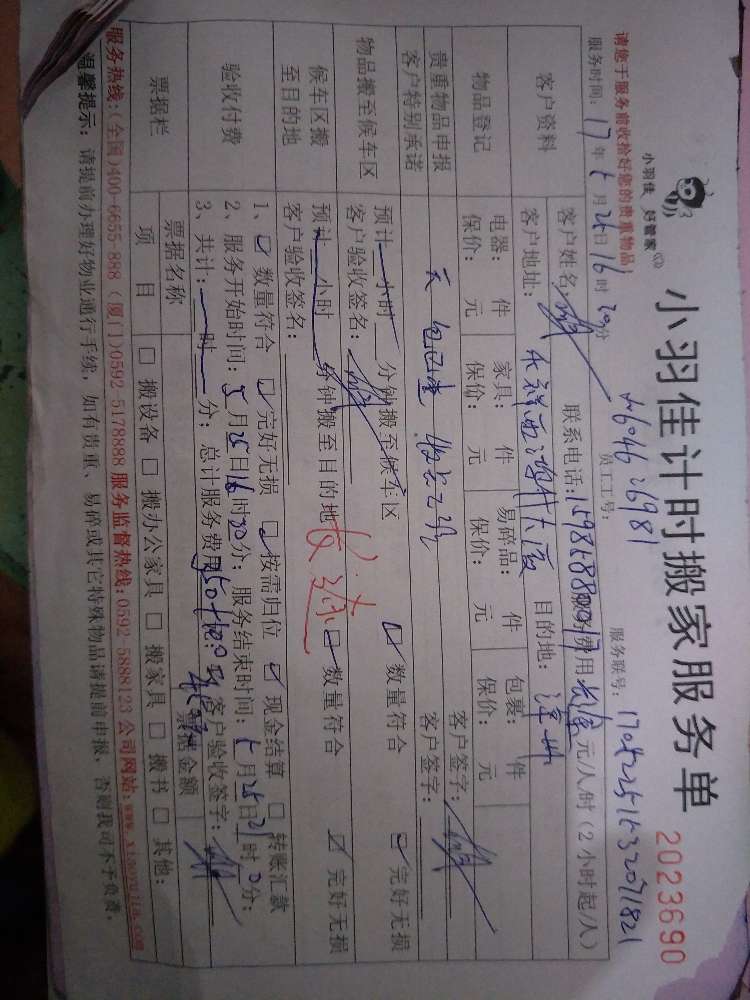 小羽佳 好管家
小羽佳计时搬家服务单
2023690
请您于服务前收拾好您的贵重物品!
员工工号:
服务联号:
服务时间: 17年 月25日16时 分
客户资料
客户姓名:
联系电话:
服务费用 元/人/时(2小时起/人)
客户地址:
目的地: 漳州
物品登记
电器: 件 家具: 件 易碎品: 件 包裹: 件
保价: 元 保价: 元 保价: 元 保价: 元
客户签字:
贵重物品申报
客户特别承诺
无
客户签字:
物品搬至候车区
预计 小时 分钟搬至候车区
☑ 数量符合 ☑ 完好无损
客户验收签名:
候车区搬
至目的地
预计 小时 分钟搬至目的地
长途
☑ 数量符合 ☑ 完好无损
客户验收签名:
验收付费
1、☑ 数量符合 ☑ 完好无损 ☑ 按需归位 ☑ 现金结算 □ 转账汇款
2、服务开始时间: 5月25日16时30分; 服务结束时间: 5月25日21时0分;
3、共计: 时 分; 总计服务费用 客户验收签字:
票据栏
票据名称
票据金额
项 目
□ 搬设备 □ 搬办公家具 □ 搬家具 □ 搬书 □ 其他:
服务热线:(全国)400-6655-888 (厦门)0592-5178888 服务监督热线:0592-5888123 公司网站:www.xiaoyujia.com
温馨提示: 请提前办理好物业通行手续, 如有贵重、易碎或其它特殊物品请提前申报, 否则我司不予负责。